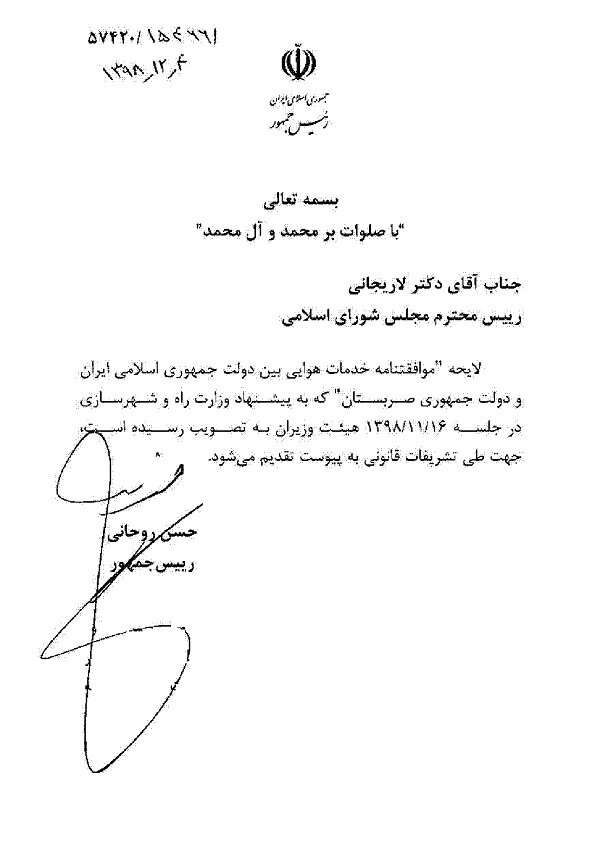 ۱۵۴۶۶۱/۵۷۴۲۰
۱۳۹۸_۱۲_۴
جمهوری اسلامی ایران
رئیس جمهور
بسمه تعالی
“با صلوات بر محمد و آل محمد”
جناب آقای دکتر لاریجانی
رییس محترم مجلس شورای اسلامی
لایحه ”موافقتنامه خدمات هوایی بین دولت جمهوری اسلامی ایران
و دولت جمهوری صربستان” که به پیشنهاد وزارت راه و شهرسازی
در جلسه ۱۳۹۸/۱۱/۱۶ هیئت وزیران به تصویب رسیده است،
جهت طی تشریفات قانونی به پیوست تقدیم می‌شود.
حسن روحانی
رییس‌جمهور